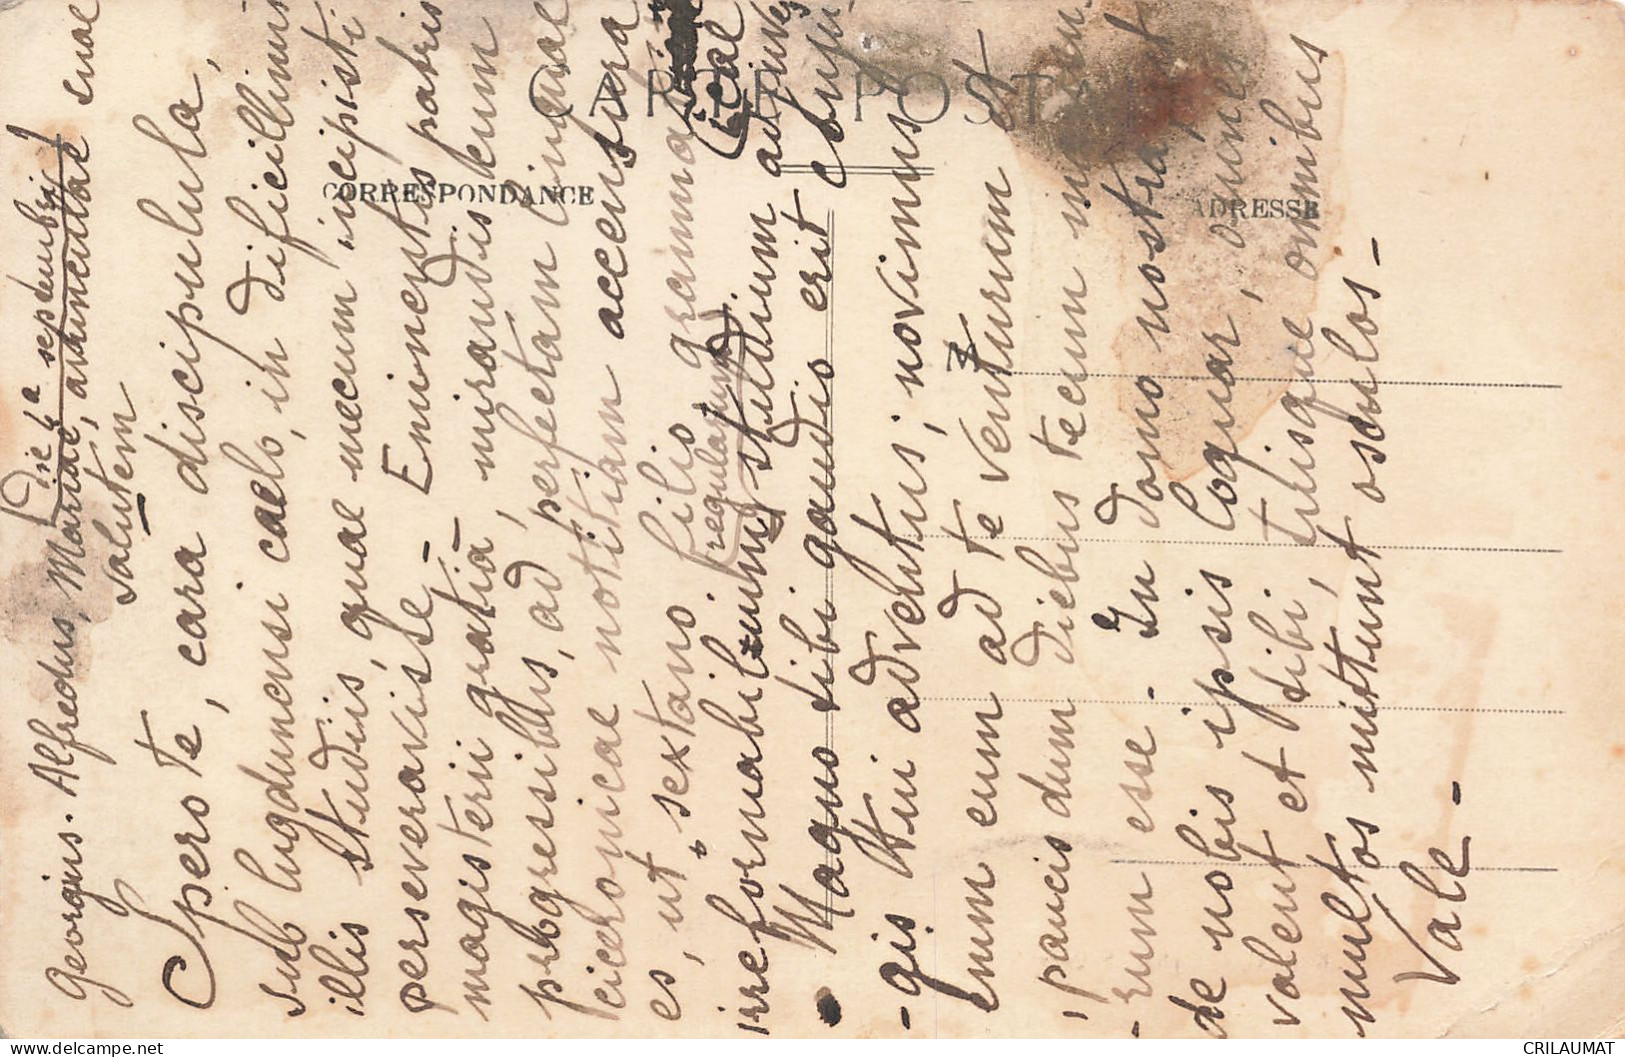 Die 4a septembri
Georgius. Alfredus, Mariae, avunculae suae
salutem
Spero te, cara discipulula,
sub lugdunensi caelo, in dificillimis
illis studiis, quae mecum incipisti
perseveravisse - Eminentis patris
magisterii gratiā, mirandis cum
progressibus, ad perfectam linguae
ciceronicae notitiam accensura
es, ut "sextano filio grammaticae
(regularum)
irreformabilium studium adjuves
Magno tibi gaudio erit conju-
-gis tui adventus; novimus
enim eum ad te venturum et
paucis dum diebus tecum
-rum esse. In domo nostra, ut
de nobis ipsis loquar, omnes
valent et tibi, tuisque omnibus
multos mittunt osculos -
Vale -
CARTE POSTALE
CORRESPONDANCE
ADRESSE
CRILAUMAT